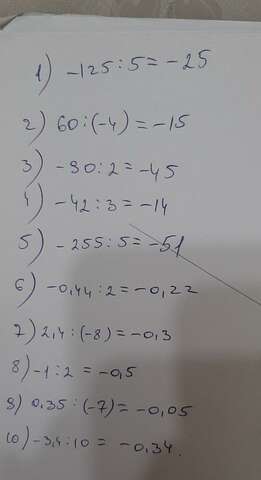 1) -125:5=-25
2) 60:(-4)=-15
3) -90:2=-45
4) -42:3=-14
5) -255:5=-51
6) -0,44:2=-0,22
7) 2,4:(-8)=-0,3
8) -1:2=-0,5
9) 0,35:(-7)=-0,05
10) -3,4:10= -0,34.